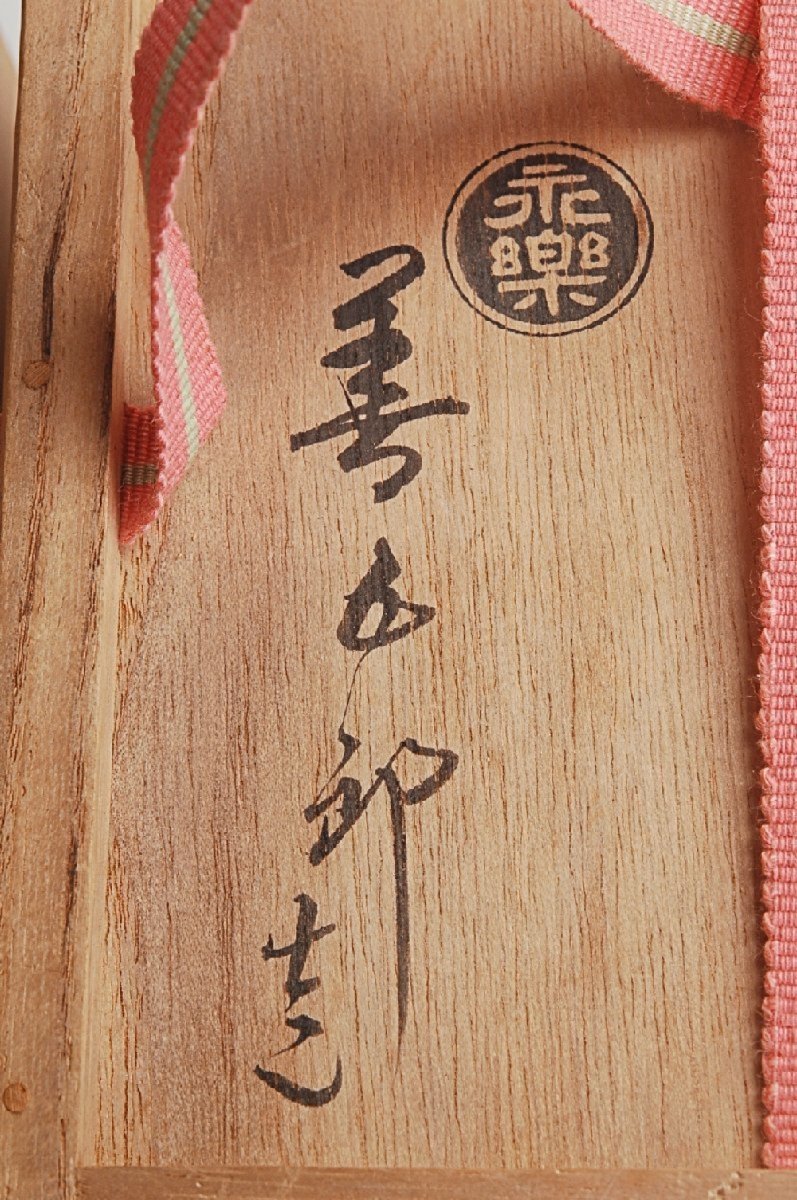 永樂
善五郎造